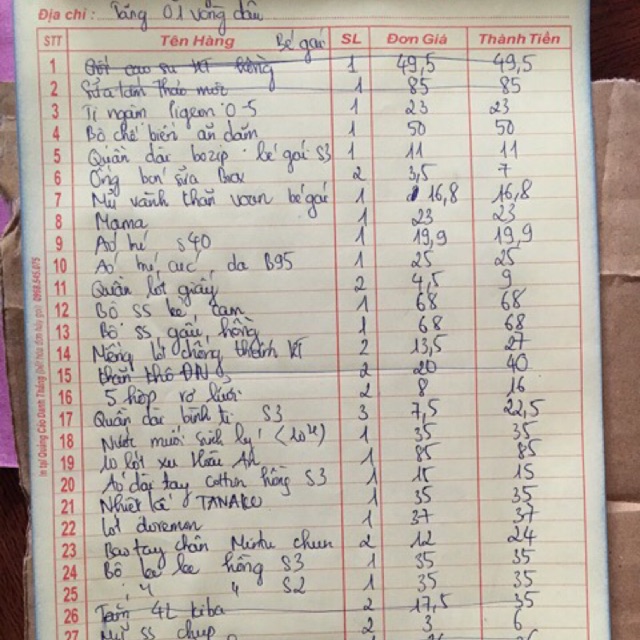 Địa chỉ: Tặng 01 vòng dâu
STT Tên Hàng Bé gái SL Đơn Giá Thành Tiền
1 cao su KT hồng 1 49,5 49,5
2 Sữa tắm thảo mộc 1 85 85
3 Ti ngậm Pigeon 0-5 1 23 23
4 Bộ chế biến ăn dặm 1 50 50
5 Quần dài bozip bé gái S3 1 11 11
6 2 3,5 7
7 Mũ vành bé gái 1 16,8 16,8
8 Mama 1 23 23
9 Áo S40 1 19,9 19,9
10 Áo cúc da B95 1 25 25
11 Quần lót giấy 2 4,5 9
12 Bộ SS kẻ cam 1 68 68
13 Bộ SS gấu hồng 1 68 68
14 lót chống thấm KT 2 13,5 27
15 khăn khô 2 20 40
16 5 hộp rơ lưỡi 2 8 16
17 Quần dài S3 3 7,5 22,5
18 Nước muối sinh lý 1 35 35
19 lót xu 1 85 85
20 Áo dài tay cotton hồng S3 1 15 15
21 Nhiệt kế TANAKO 1 35 35
22 Lót doremon 1 37 37
23 Bao tay chân chun 2 12 24
24 Bộ hồng S3 1 35 35
25 " " S2 1 35 35
26 Tặng 2 17,5 35
27 Mũ SS chụp 2 3 6
In tại Quảng Cáo Danh Thắng 0988.545.075